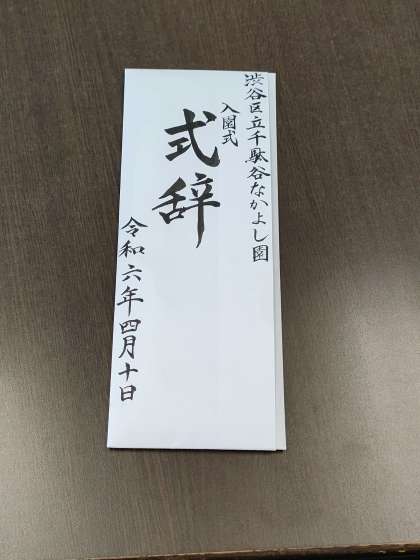 渋谷区立千駄谷なかよし園
入園式
式辞
令和六年四月十日